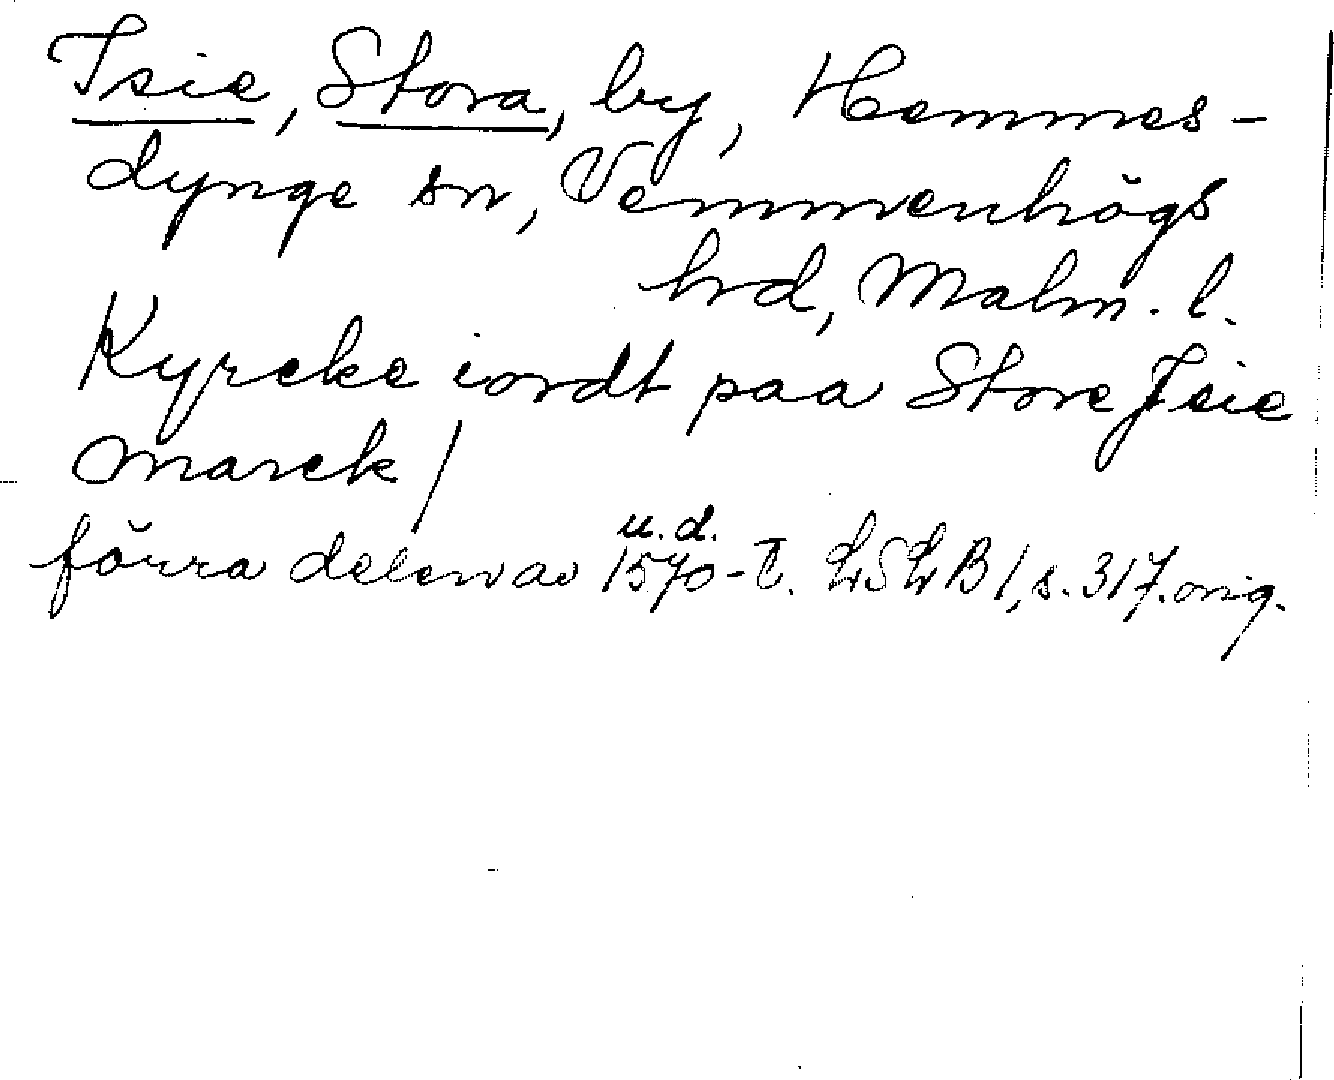 Isie, Stora, by, Hemmes-
dynge sn, Vemmenhögs
hrd, Malm. l.
Kyrcke iordt paa Store Isie
marck /
u.d.
förra delen av 1570-t. LSLB 1, s. 317. orig.